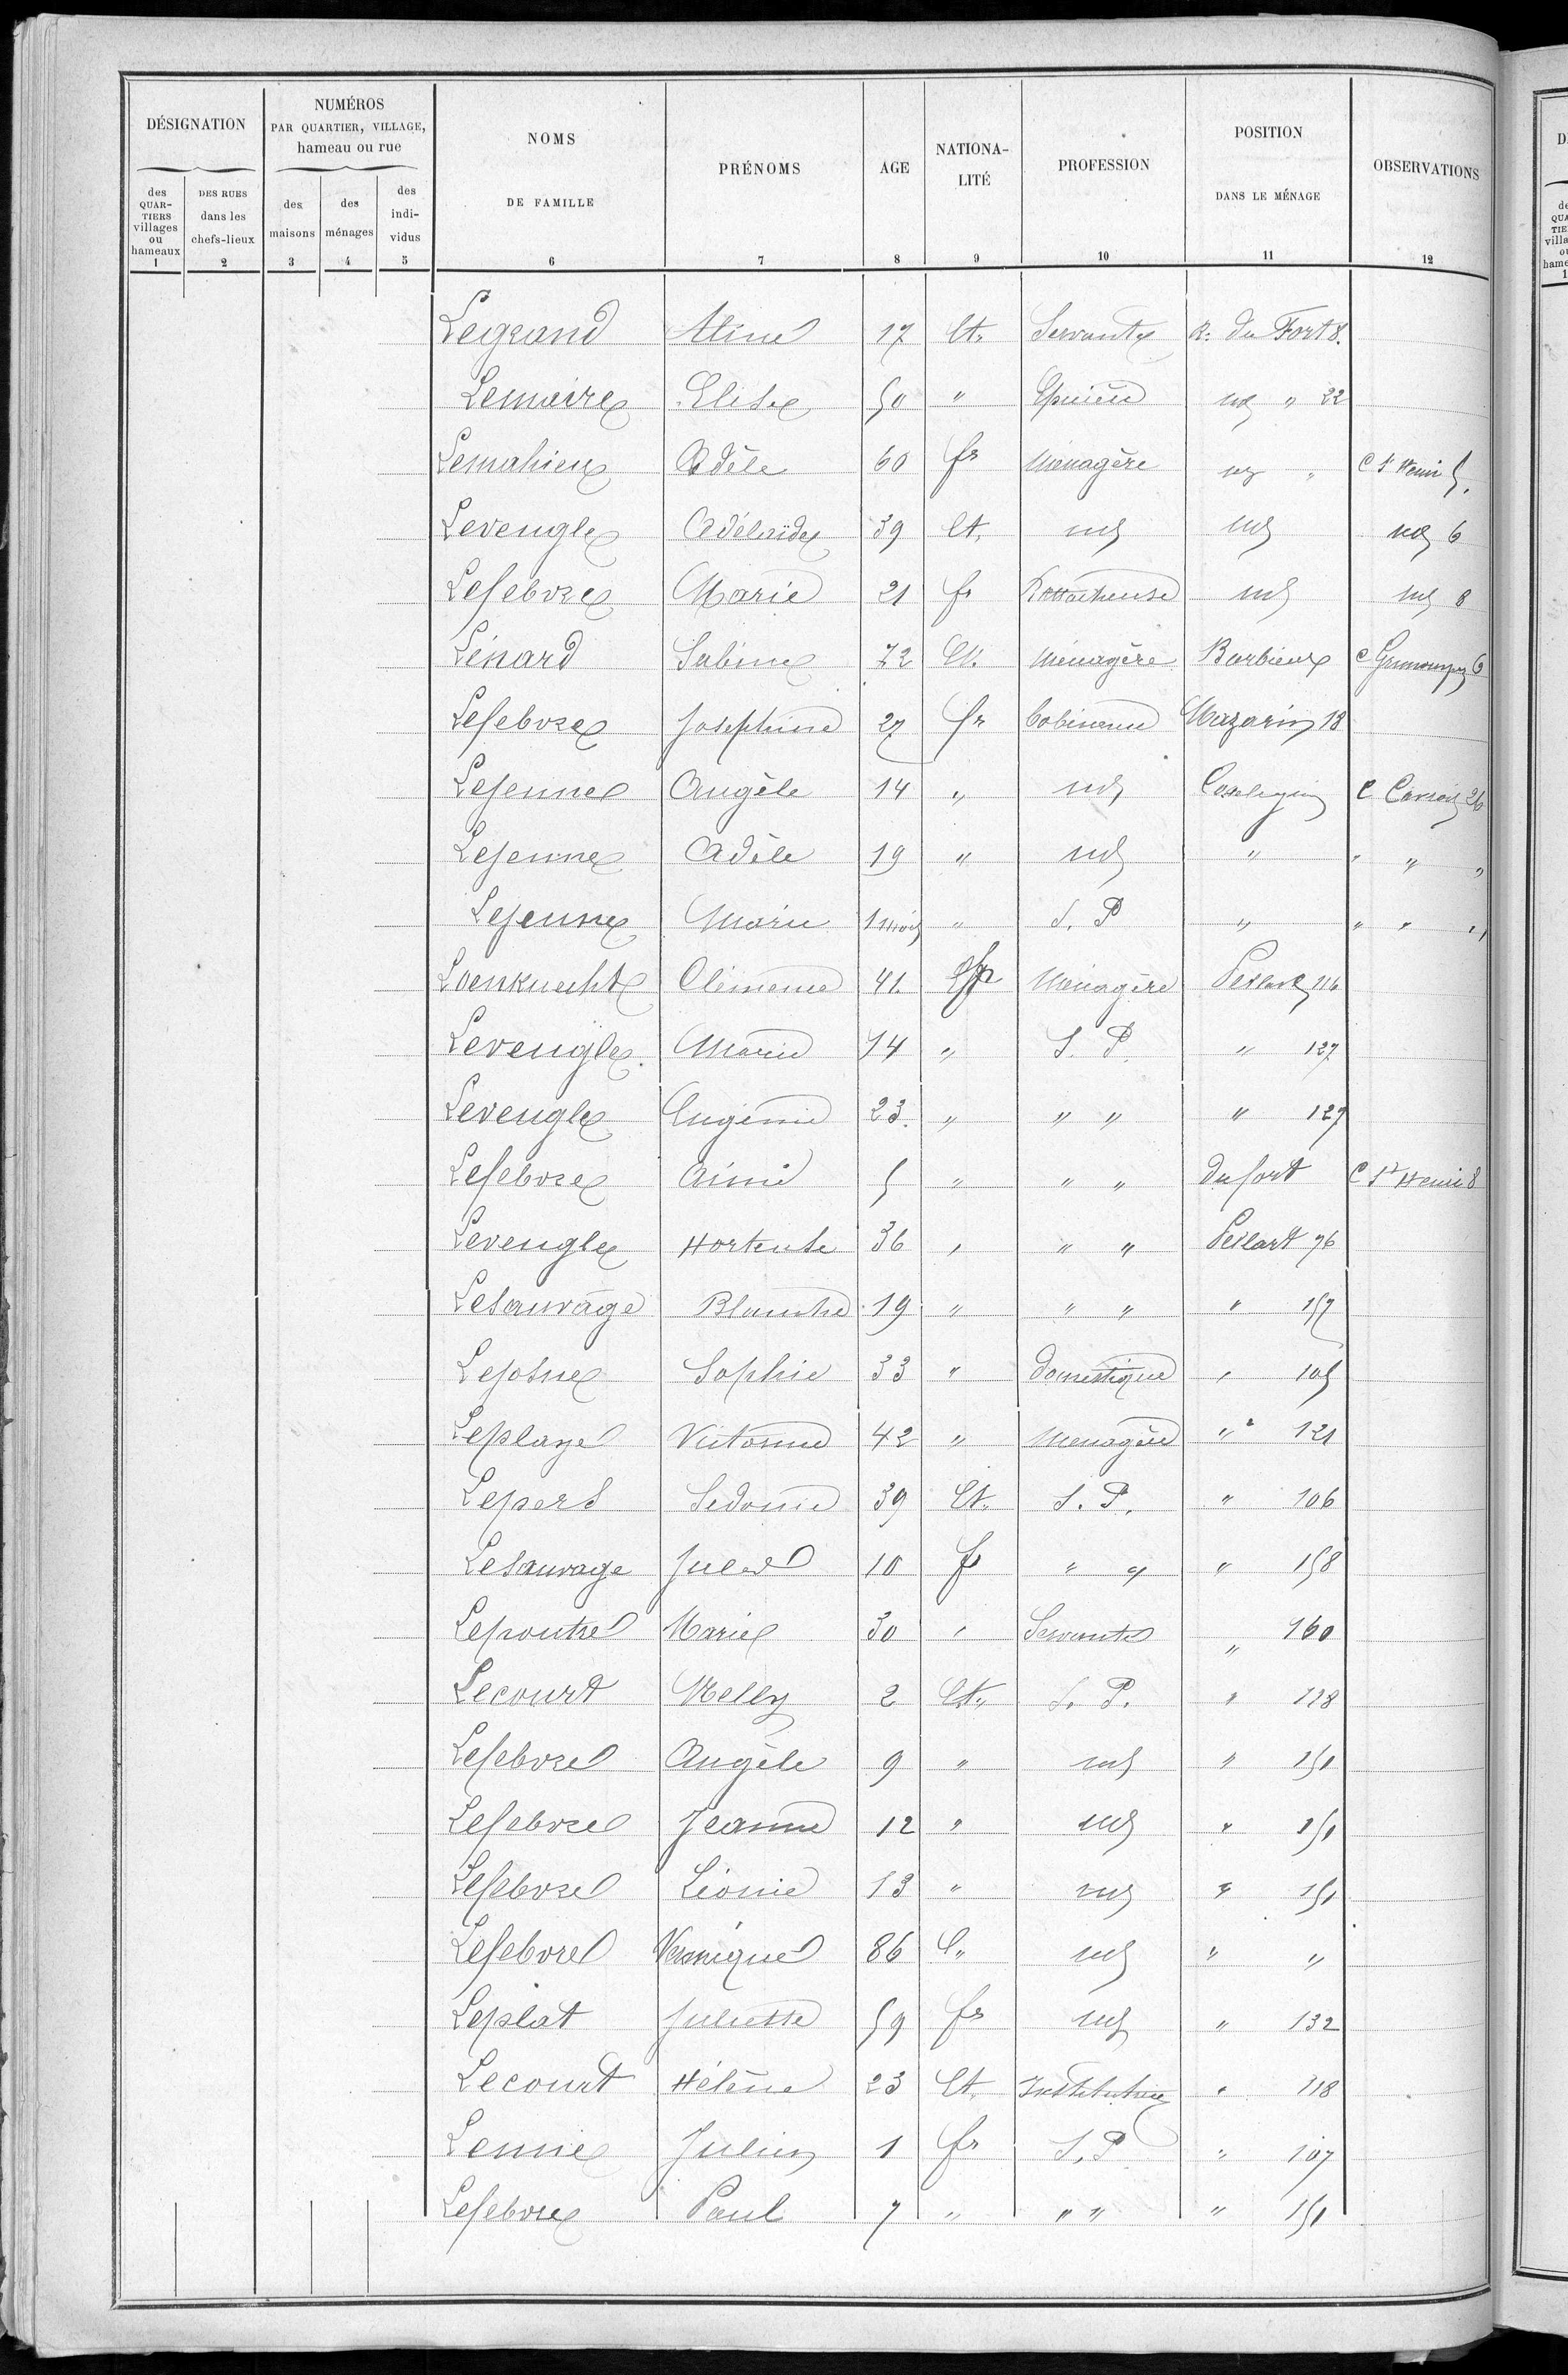 DÉSIGNATION
NUMÉROS PAR QUARTIER, VILLAGE, hameau ou rue
NOMS DE FAMILLE
PRÉNOMS
AGE
NATIONA-LITÉ
PROFESSION
POSITION DANS LE MÉNAGE
OBSERVATIONS
des QUAR-TIERS villages ou hameaux
DES RUES dans les chefs-lieux
des maisons
des ménages
des indi-vidus
1 2 3 4 5 6 7 8 9 10 11 12
Legrand Aline 17 Et. Servante R. du Fort 8.
Lemaire Elise 50 " Epicière id " 22
Lemahieu Adèle 60 fr Ménagère id " C St Henri 5
Leveugle Adélaïde 39 Et. id id id 6
Lefebvre Marie 21 fr Rattacheuse id id 8
Lénard Sabine 72 Et. Ménagère Barbieux C 6
Lefebvre Joséphine 27 fr Bobineuse Mazarin 18
Lejeune Angèle 14 " id C 26
Lejeune Adèle 19 " id " " " "
Lejeune Marie 1 mois " S. P " " " "
Loenknecht Clémence 41 fr Ménagère Pellart 116
Leveugle Marie 14 " S. P. " 127
Leveugle Eugénie 23 " " " " 127
Lefebvre Aimé 5 " " " du fort C St Henri 8
Leveugle Hortense 36 " " " Pellart 76
Lesauvage Blanche 19 " " " " 157
Lejosne Sophie 33 " domestique " 105
Leplaye Victorine 42 " Menagère " 121
Lepers Sidonie 39 Et. S. P. " 106
Lesauvage Jules 10 fr " " " 158
Lepoutre Marie 30 " Servante " 160
Lecourt Nelly 2 Et. S. P. " 118
Lefebvre Angèle 9 " id " 151
Lefebvre Jeanne 12 " id " 151
Lefebvre Léonie 13 " id " 151
Lefebvre Veronique 86 " id " "
Leplat Juliette 59 fr id " 132
Lecourt Hélène 23 Et. Institutrice " 118
Lennie Julien 1 fr S. P " 107
Lefebvre Paul 7 " " " " 151